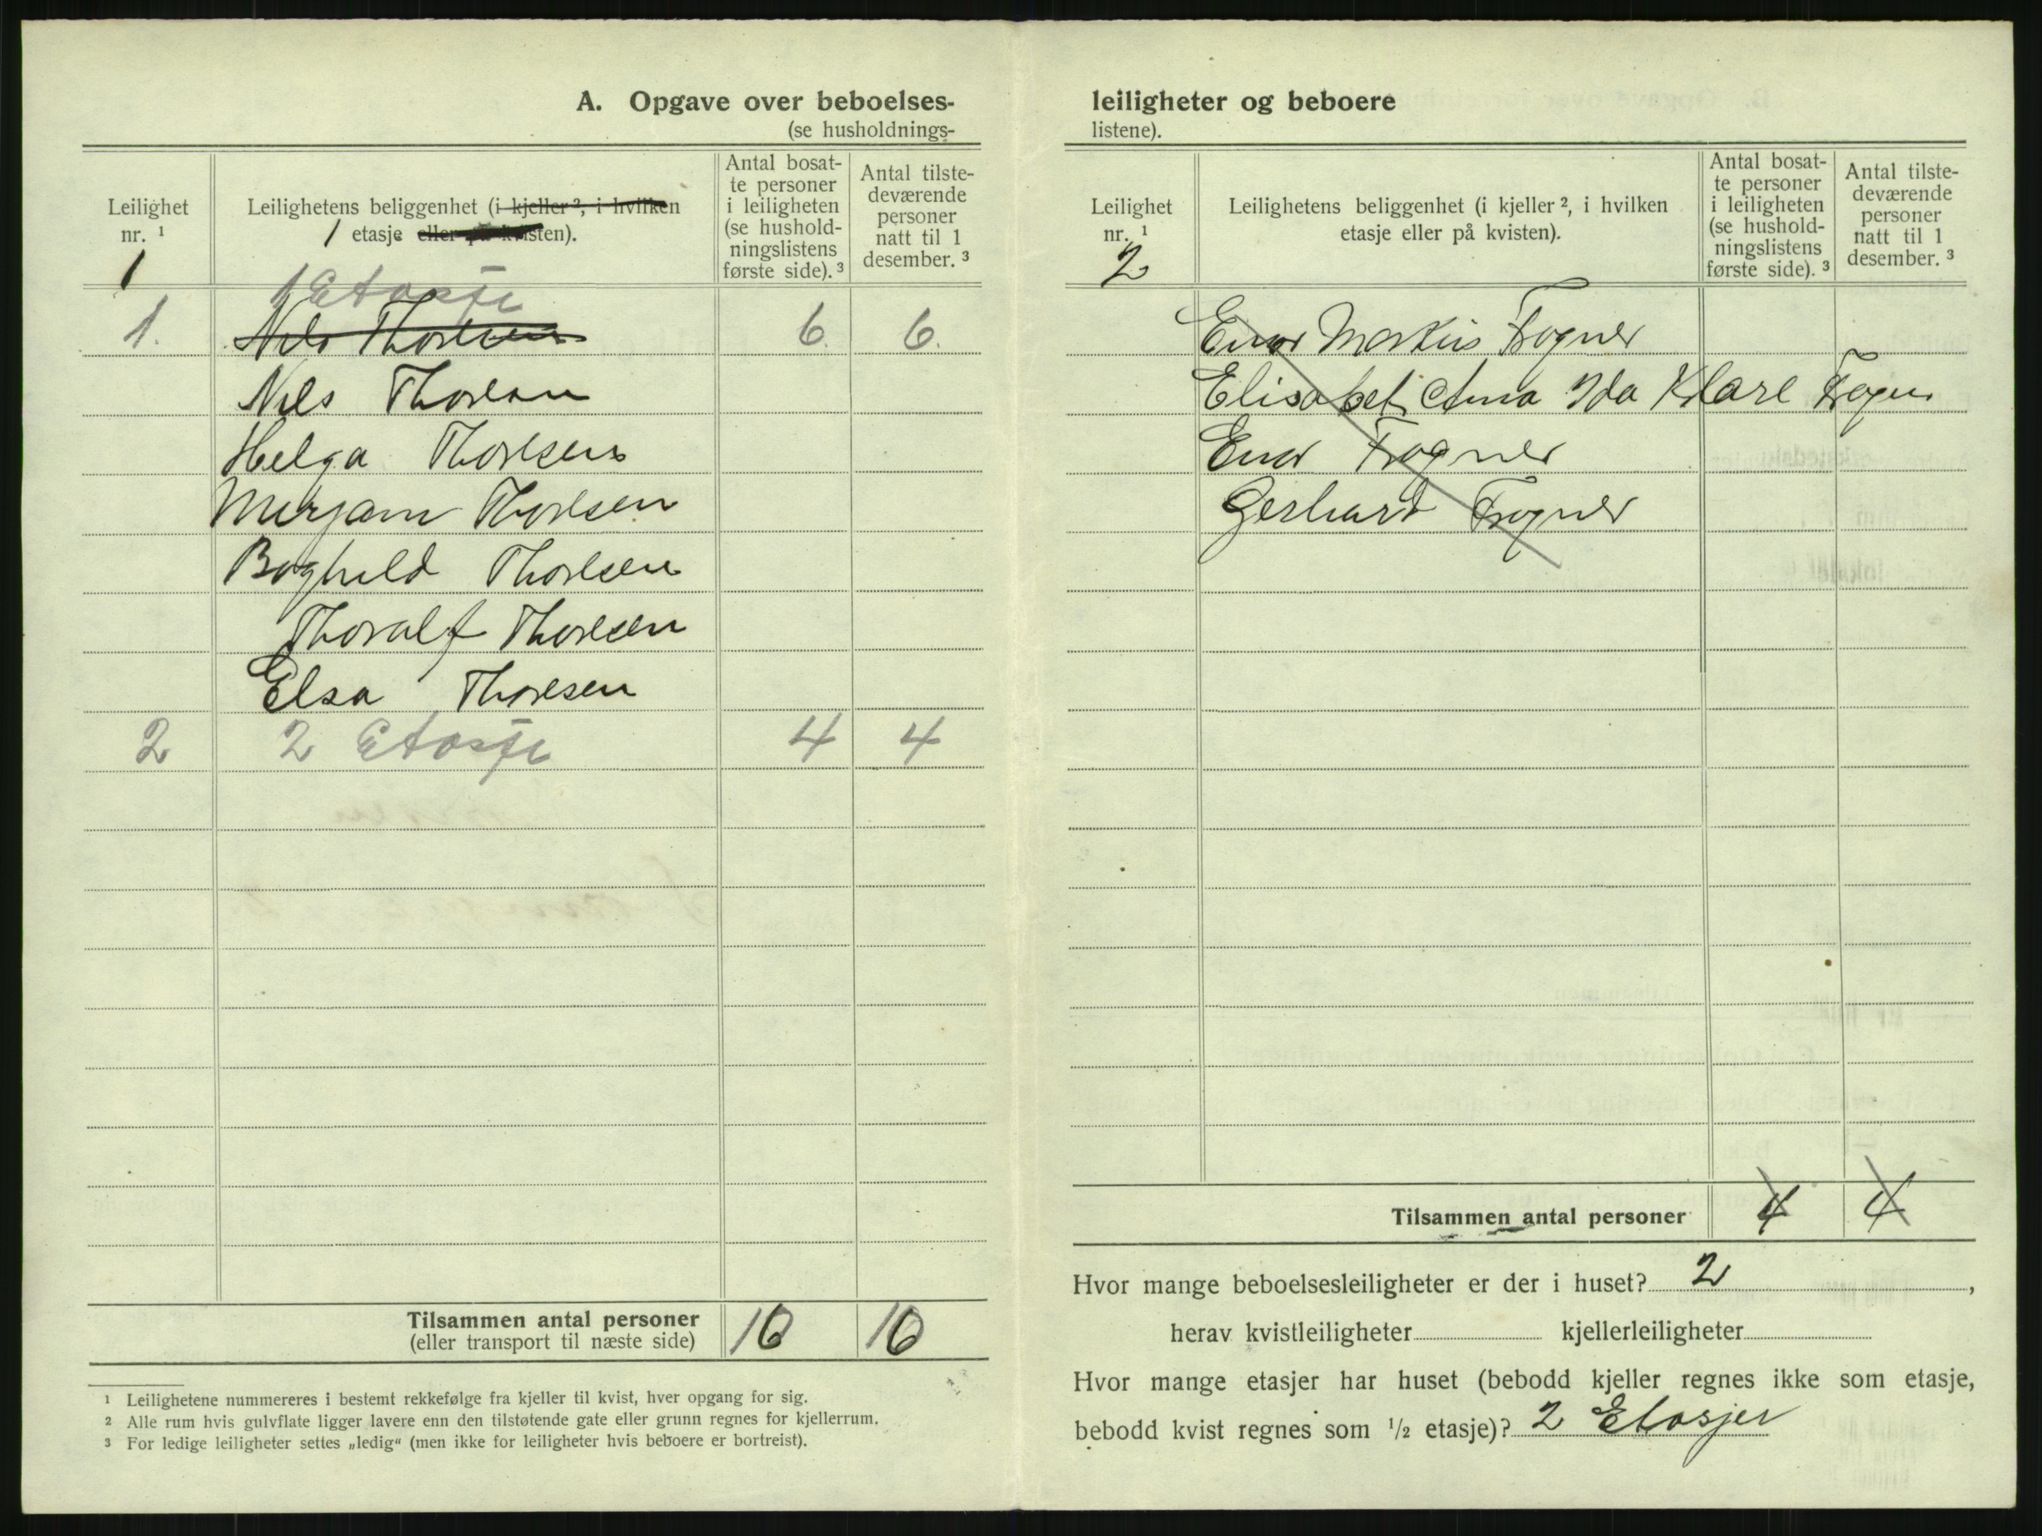 A. Opgave over beboelses-
(se husholdnings-
Leilighet
nr. ¹
1
Leilighetens beliggenhet (i kjeller ², i hvilken
1 etasje eller på kvisten).
Antal bosat-
te personer
i leiligheten
(se hushold-
ningslistens
første side). ³
Antal tilste-
deværende
personer
natt til 1
desember. ³
1 Etasje
1. Nils Thorlsen 6. 6.
Nils Thorlsen
Helga Thorlsen
Mirjam Thorlsen
Boghild Thorlsen
Thoralf Thorlsen
Elsa Thorlsen
2 2 Etasje 4 4
Tilsammen antal personer
(eller transport til næste side)
10 10
¹ Leilighetene nummereres i bestemt rekkefølge fra kjeller til kvist, hver opgang for sig.
² Alle rum hvis gulvflate ligger lavere enn den tilstøtende gate eller grunn regnes for kjellerrum.
³ For ledige leiligheter settes „ledig“ (men ikke for leiligheter hvis beboere er bortreist).
leiligheter og beboere
listene).
Leilighet
nr. ¹
2
Leilighetens beliggenhet (i kjeller ², i hvilken
etasje eller på kvisten).
Antal bosat-
te personer
i leiligheten
(se hushold-
ningslistens
første side). ³
Antal tilste-
deværende
personer
natt til 1
desember. ³
Einar Markus Frogner
Elisabet Anna Ida Klare Frogner
Einar Frogner
Gerhard Frogner
Tilsammen antal personer 4 4
Hvor mange beboelsesleiligheter er der i huset? 2,
herav kvistleiligheter kjellerleiligheter
Hvor mange etasjer har huset (bebodd kjeller regnes ikke som etasje,
bebodd kvist regnes som ½ etasje)? 2 Etasjer